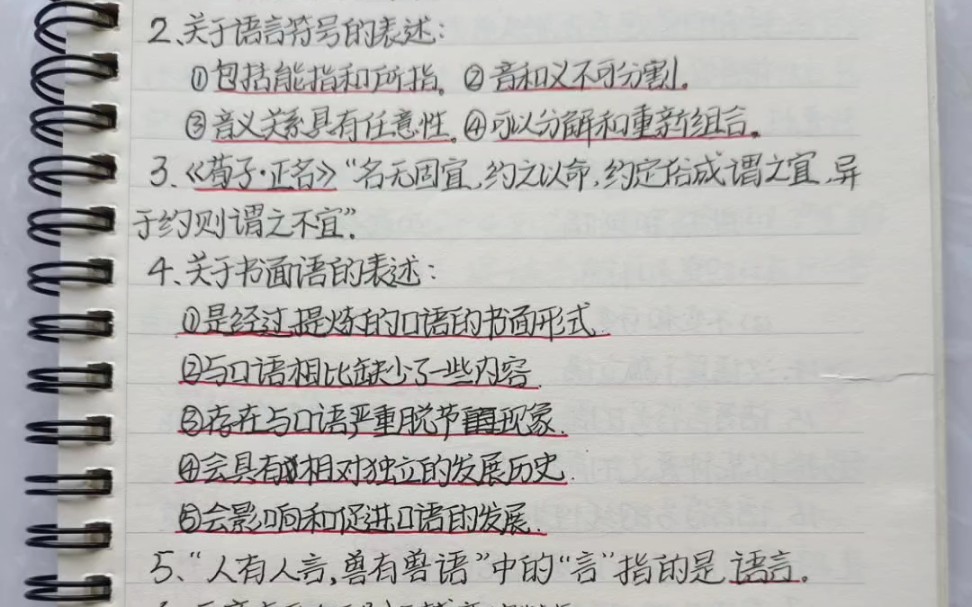 2、关于语言符号的表述：
①包括能指和所指。②音和义不可分割。
③音义关系具有任意性。④可以分解和重新组合。
3、《荀子·正名》“名无固宜，约之以命，约定俗成谓之宜，异
于约则谓之不宜”。
4、关于书面语的表述：
①是经过提炼的口语的书面形式.
②与口语相比缺少了一些内容.
③存在与口语严重脱节现象.
④会具有相对独立的发展历史.
⑤会影响和促进口语的发展.
5、“人有人言，兽有兽语”中的“言”指的是 语言。